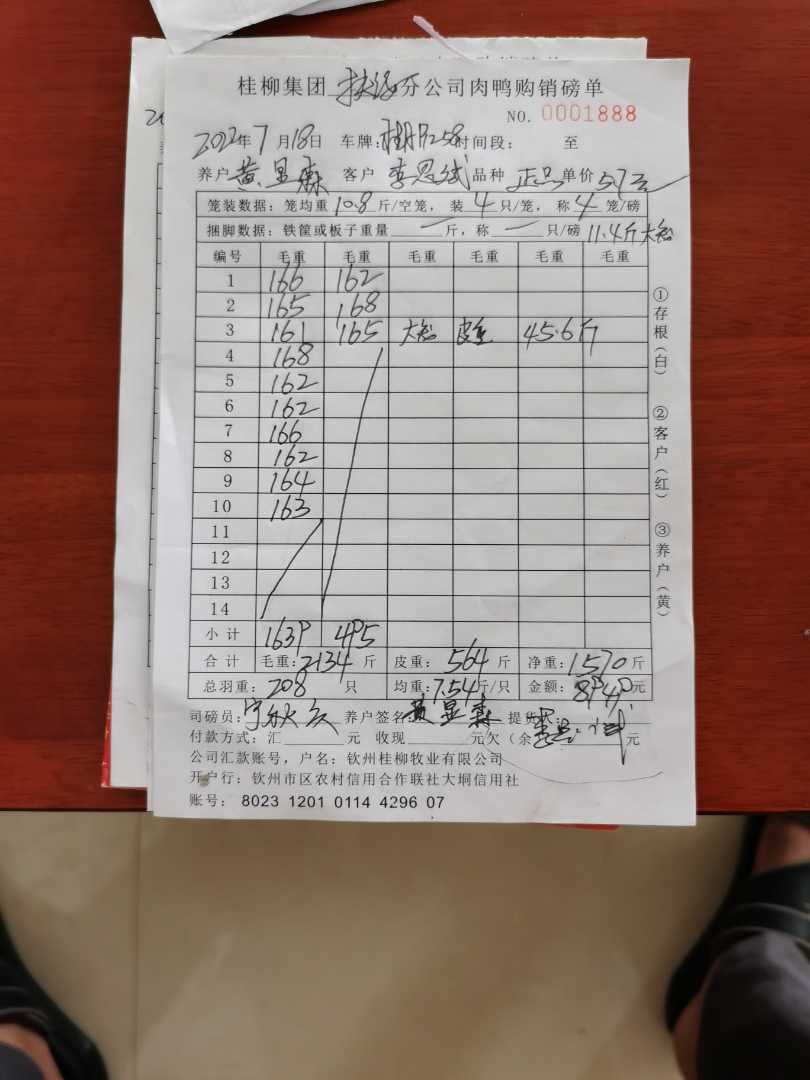 桂柳集团 扶绥分公司肉鸭购销磅单
NO. 0001888
2022年7月18日 车牌: 时间段: 至
养户 黄显森 客户 李思斌 品种 正品 单价 5.7元
笼装数据：笼均重 10.8 斤/空笼，装 4 只/笼，称 4 笼/磅
捆脚数据：铁筐或板子重量 一 斤，称 一 只/磅 11.4斤大
编号 毛重 毛重 毛重 毛重 毛重 毛重
1 166 162
2 165 168
3 161 165 大 皮重 45.6斤
4 168
5 162
6 162
7 166
8 162
9 164
10 163
11
12
13
14
小计 1639 495
合计 毛重: 2134 斤 皮重: 564 斤 净重: 1570 斤
总羽重: 208 只 均重: 7.54 斤/只 金额: 8949 元
司磅员: 宁 养户签名: 黄显森 提货人:
付款方式: 汇 元 收现 元欠（余 元
公司汇款账号，户名：钦州桂柳牧业有限公司
开户行：钦州市区农村信用合作联社大垌信用社
账号: 8023 1201 0114 4296 07
①存根（白） ②客户（红） ③养户（黄）